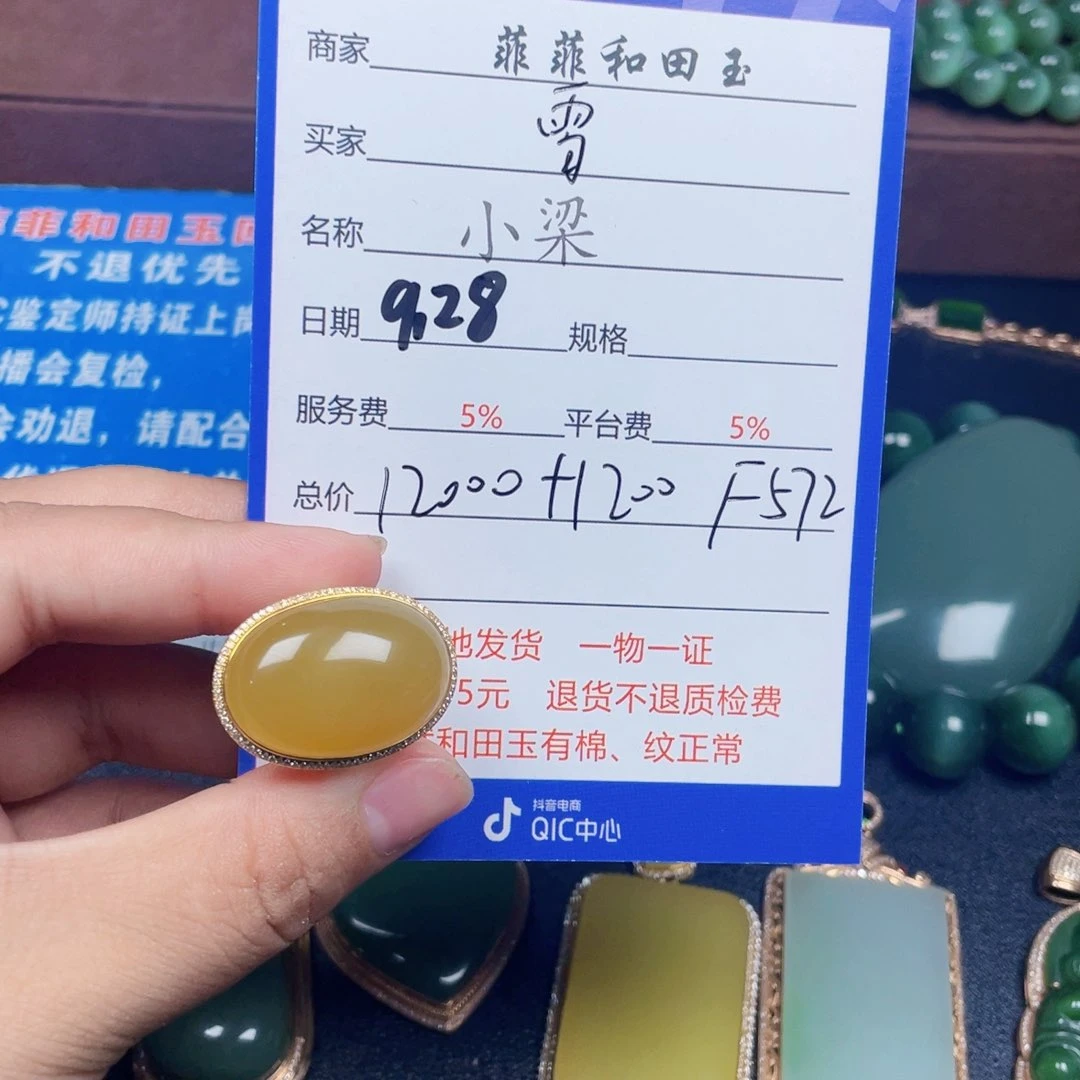 商家 菲菲和田玉
买家 雪
名称 小梁
日期 9.28 规格
服务费 5% 平台费 5%
总价 12000+1200 F572
地发货 一物一证
5元 退货不退质检费
和田玉有棉、纹正常
抖音电商
QIC中心
菲和田玉
不退优先
鉴定师持证上岗
播会复检，
会劝退，请配合